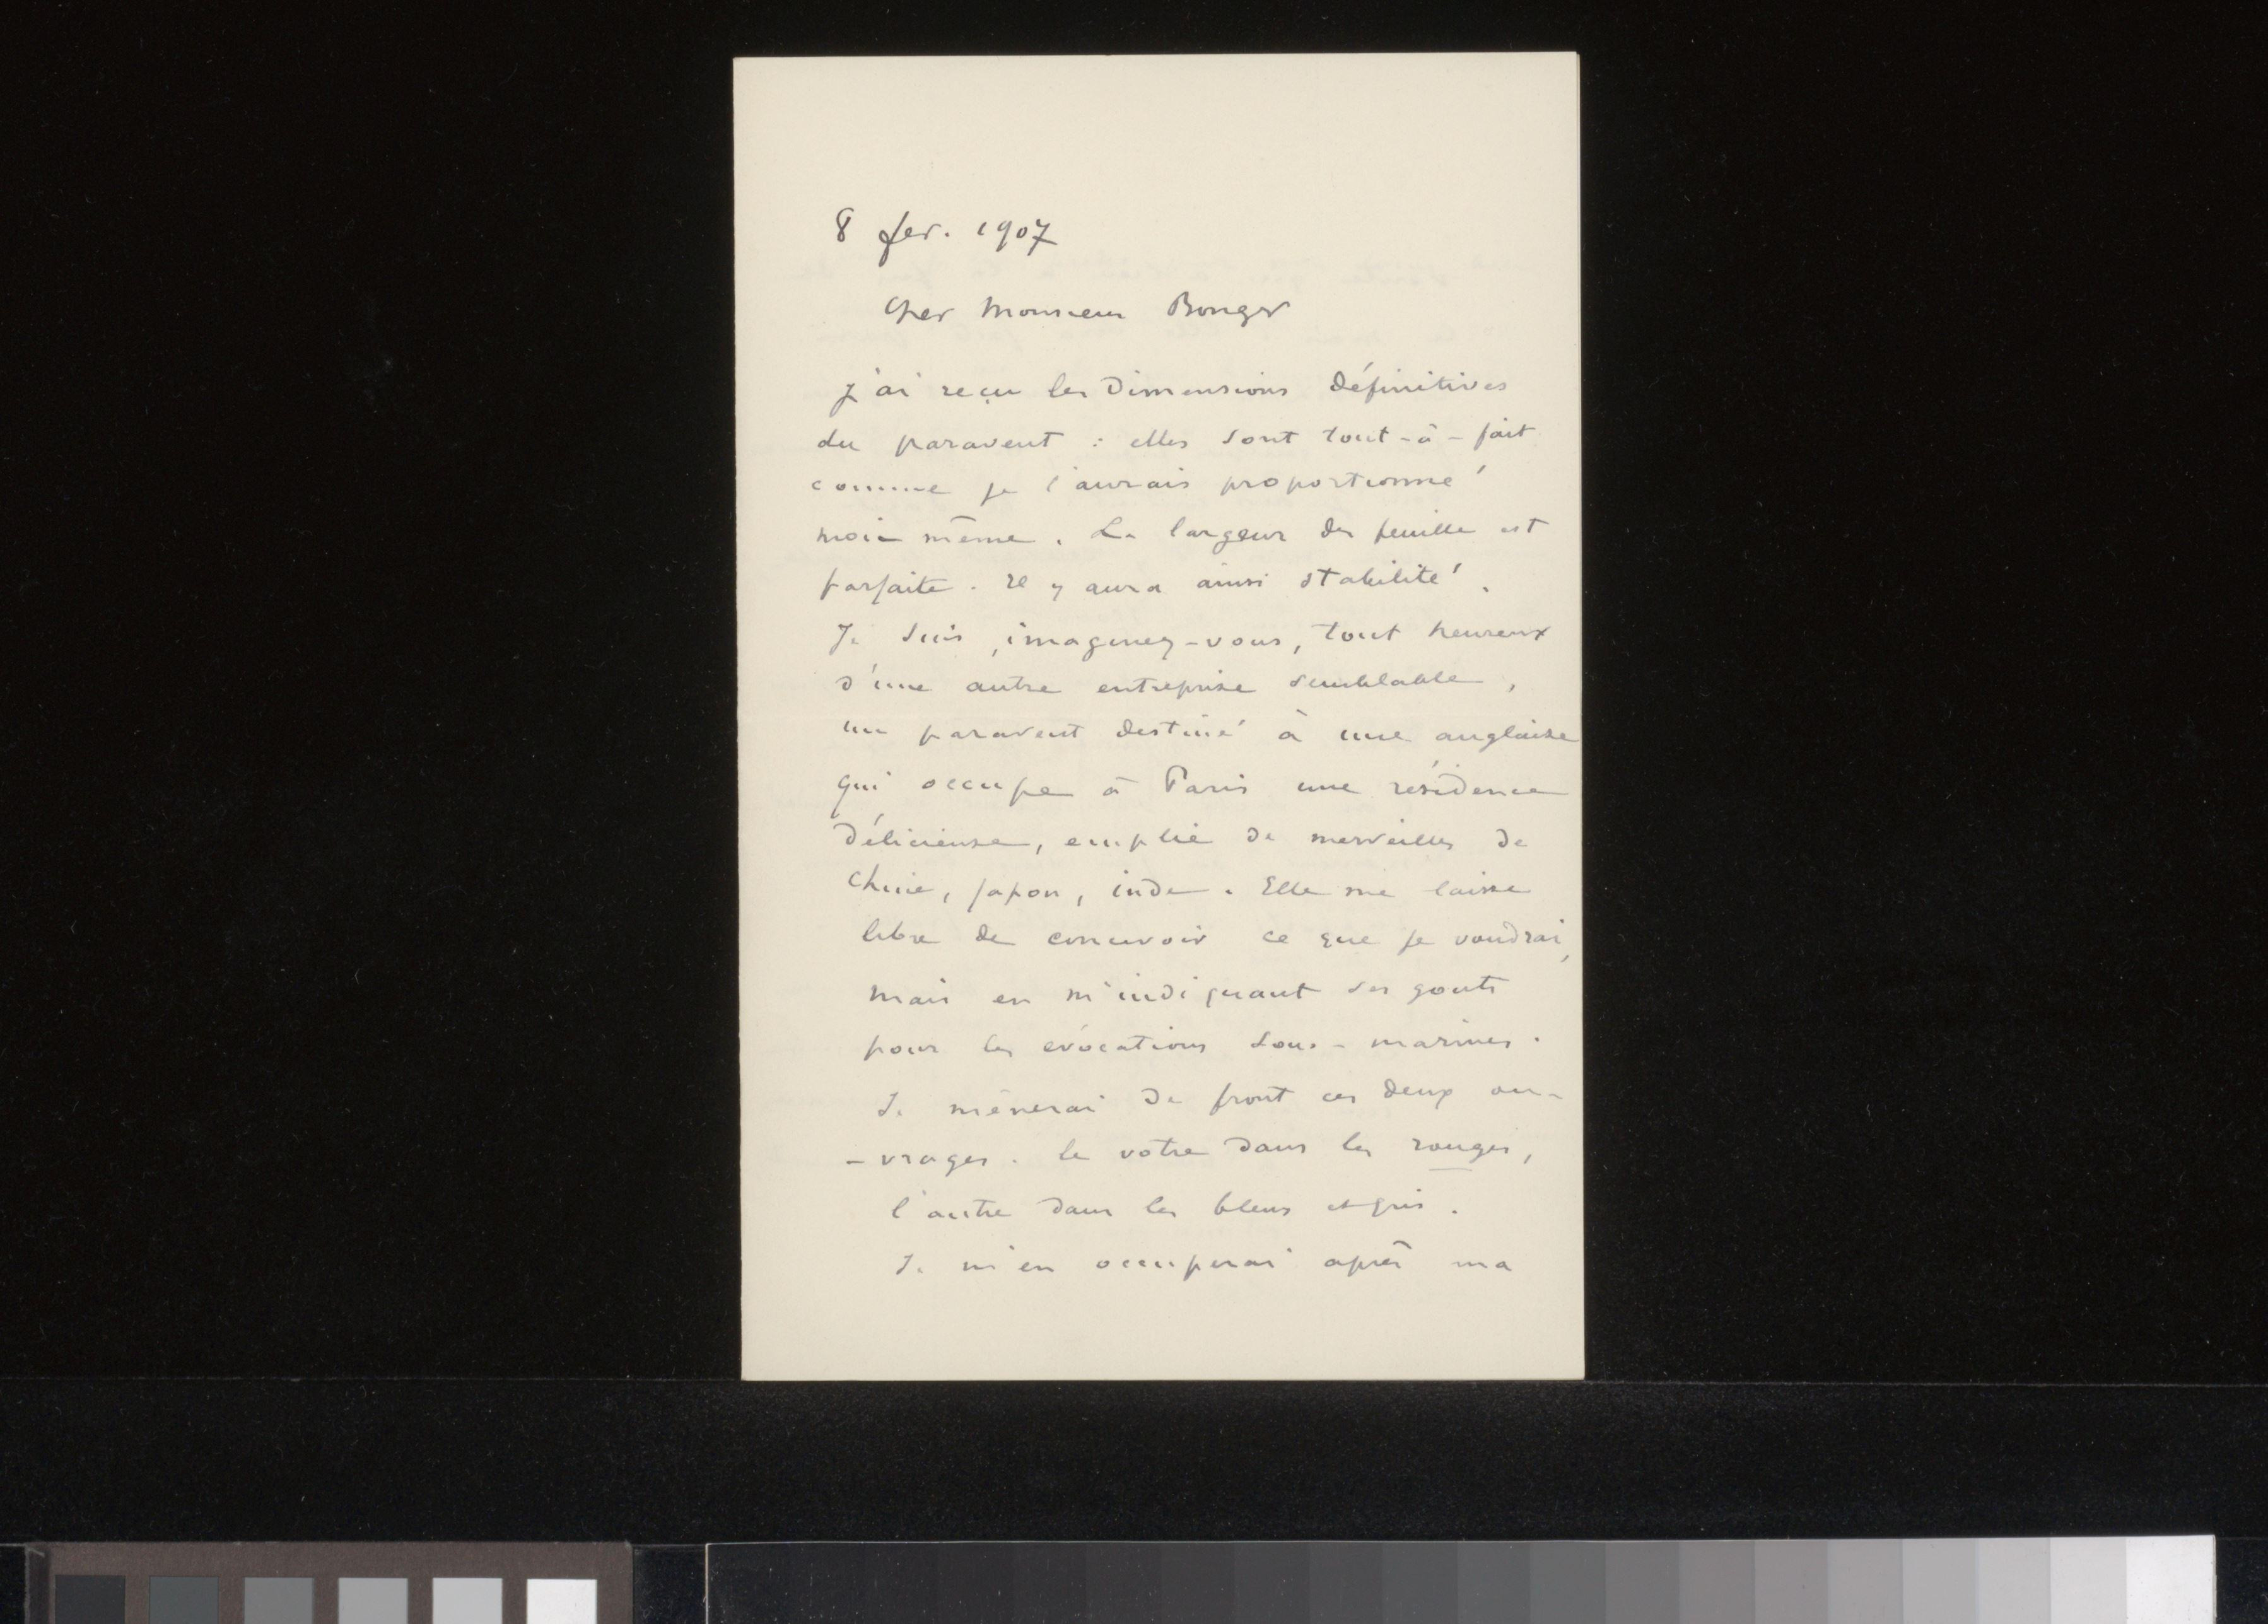 8 fev. 1907
Cher Monsieur Bonger
J'ai reçu les dimensions définitives
du paravent : elles sont tout-à-fait
comme je l'aurais proportionné
moi-même. La largeur des feuille est
parfaite. Il y aura ainsi stabilité.
Je suis, imaginez-vous, tout heureux
d'une autre entreprise semblable,
un paravent destiné à une anglaise
qui occupe à Paris une résidence
délicieuse, emplie de merveilles de
Chine, Japon, inde. Elle me laisse
libre de concevoir ce que je voudrai,
mais en m'indiquant ses gouts
pour les evócations sous-marines.
Je mènerai de front ces deux ou-
-vrages. le votre dans les rouges,
l'autre dans les bleus et gris.
Je m'en occuperai après ma